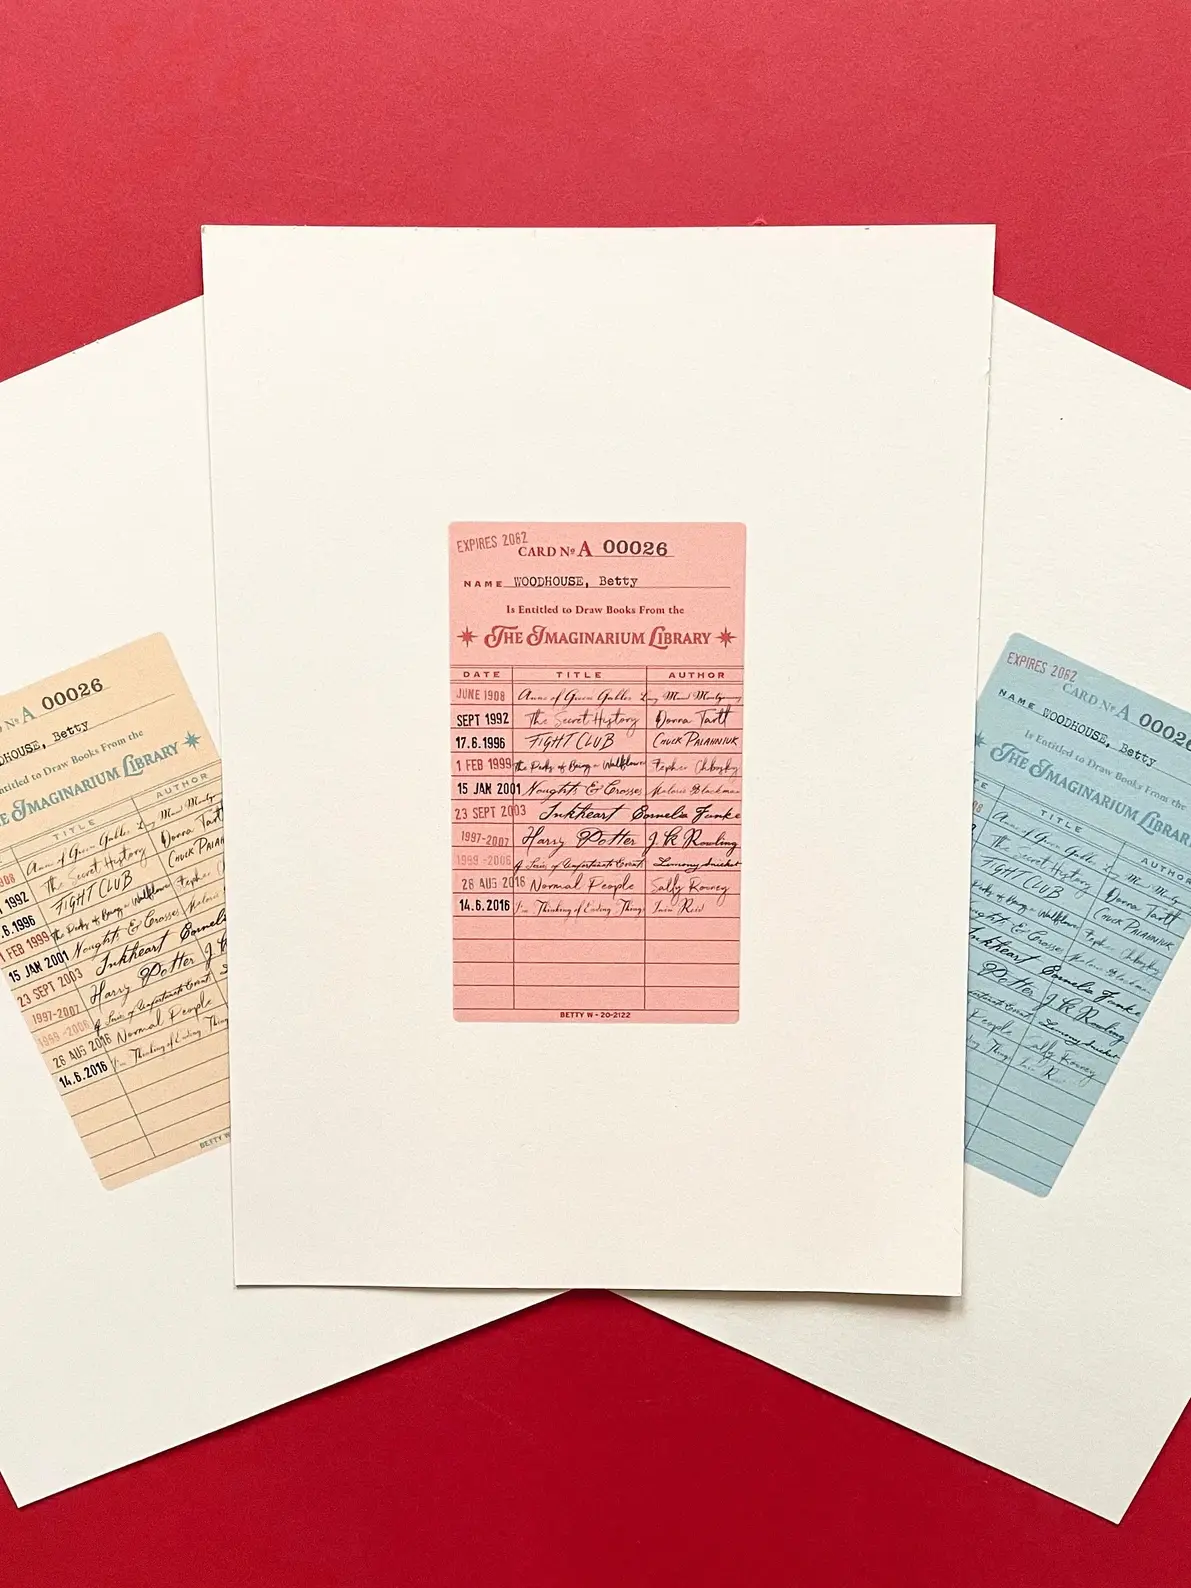 EXPIRES 2082
CARD Nº A 00026
NAME WOODHOUSE, Betty
Is Entitled to Draw Books From the
THE IMAGINARIUM LIBRARY
DATE TITLE AUTHOR
JUNE 1908 Anne of Green Gables Lucy Maud Montgomery
SEPT 1992 The Secret History Donna Tartt
17.6.1996 FIGHT CLUB CHUCK PALAHNIUK
1 FEB 1999 The Perks of Being a Wallflower Stephen Chbosky
15 JAN 2001 Noughts & Crosses Malorie Blackman
23 SEPT 2003 Inkheart Cornelia Funke
1997-2007 Harry Potter J K Rowling
1999-2006 A Series of Unfortunate Events Lemony Snicket
28 AUG 2018 Normal People Sally Rooney
14.6.2016 I'm Thinking of Ending Things Iain Reid
BETTY W - 20-2122
Nº A 00026
WOODHOUSE, Betty
Entitled to Draw Books From the
IMAGINARIUM LIBRARY
TITLE AUTHOR
Anne of Green Gables
1992 The Secret History Donna Tartt
6.1996 FIGHT CLUB CHUCK
1 FEB 1999 The Perks of Being a Wallflower
15 JAN 2001 Noughts & Crosses
23 SEPT 2003 Inkheart
1997-2007 Harry Potter
1999-2006 A Series of Unfortunate Events
28 AUG 2016 Normal People
14.6.2016 I'm Thinking of Ending Things
BETTY W
EXPIRES 2082
CARD Nº A 00026
NAME WOODHOUSE, Betty
Is Entitled to Draw Books From the
THE IMAGINARIUM
TITLE
Anne of Green Gables
The Secret History Donna Tartt
FIGHT CLUB CHUCK PALAHNIUK
Perks of Being a Wallflower Stephen Chbosky
& Crosses Malorie
Inkheart Cornelia Funke
Potter J K Rowling
Lemony Snicket
People Sally Rooney
Iain